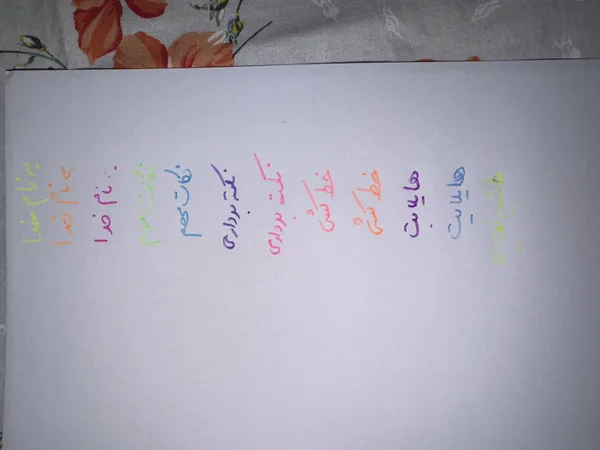 به نام خدا
به نام خدا
به نام خدا
نکات مهم
نکات مهم
نکته برداری
نکته برداری
خط کشی
خط کشی
هایلایت
هایلایت